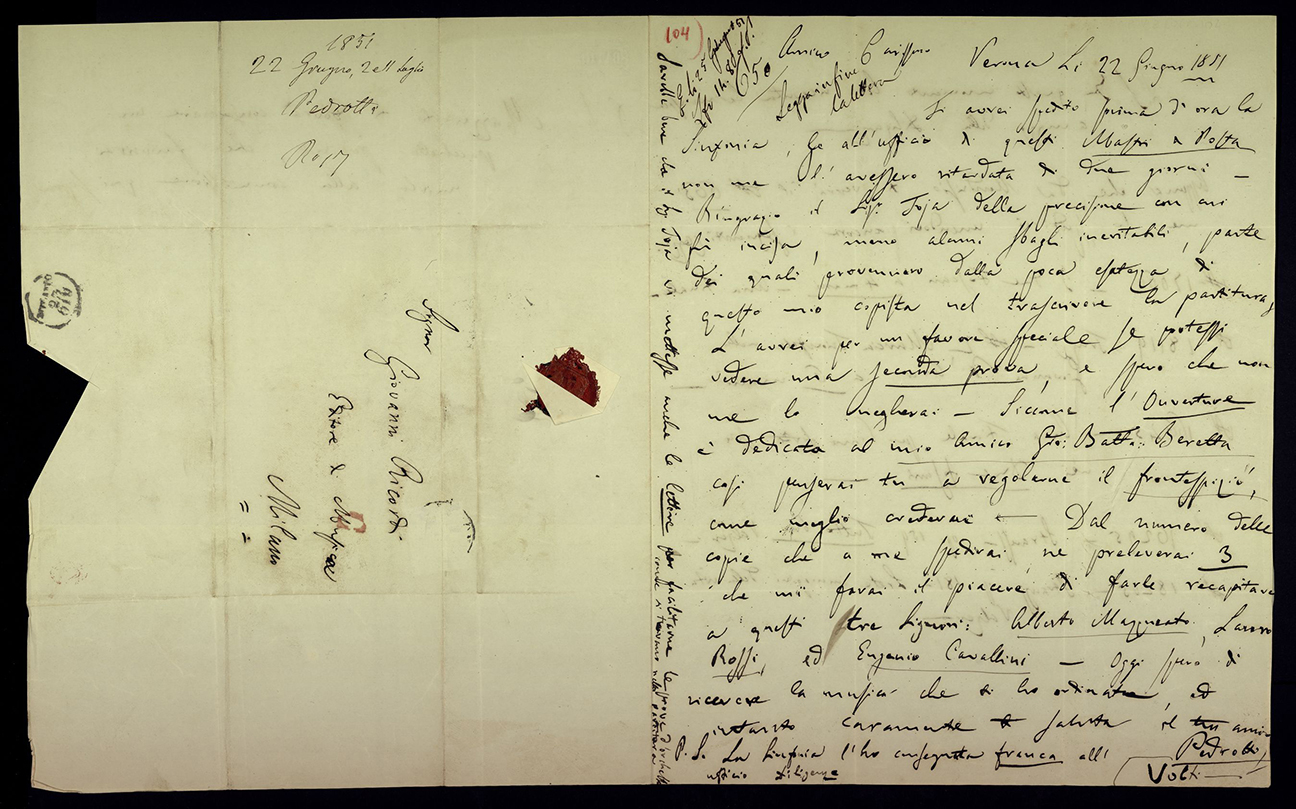 1851
22 Giugno, 2 e 11 Luglio
Pedrotti
Signor
Giovanni Ricordi
Editore di Musica
Milano
MILANO
GIU
104
650
Amico Carissimo
Leggi in fine
la lettera
Verona Li 22 Giugno 1851
Ti avrei spedito prima d'ora la
Sinfonia, se all'ufficio di questi Mastri di Posta
non me l'avessero ritardata di due giorni —
Ringrazio il Sigr. Toja della precisione con cui
fù incisa, meno alcuni sbagli inevitabili, parte
dei quali provennero dalla poca esatezza di
questo mio copista nel trascrivere la partitura,
L'avrei per un favore speciale se potessi
vedere una seconda prova, e spero che non
me lo negherai — Siccome l'Ouverture
è dedicata al mio Amico Gio: Batta: Beretta
così penserai tu a regolarne il frontespizio,
come meglio crederai — Dal numero delle
copie che a me spedirai, ne preleverai 3
che mi farai il piacere di farle recapitare
a questi tre Signori: Alberto Mazzucato, Lauro
Rossi, ed Eugenio Cavallini — Oggi spero di
ricevere la musica che ti ho ordinata, ed
intanto caramente saluta il tuo amico
Pedrotti
P. S. La Sinfonia l'ho consegnata franca all'
ufficio diligenze
Volti
Sarebbe bene che il Sigr Toja vi mettesse anche le lettere per facilitarne le prove d'orchestra
come si trovano nella partitura